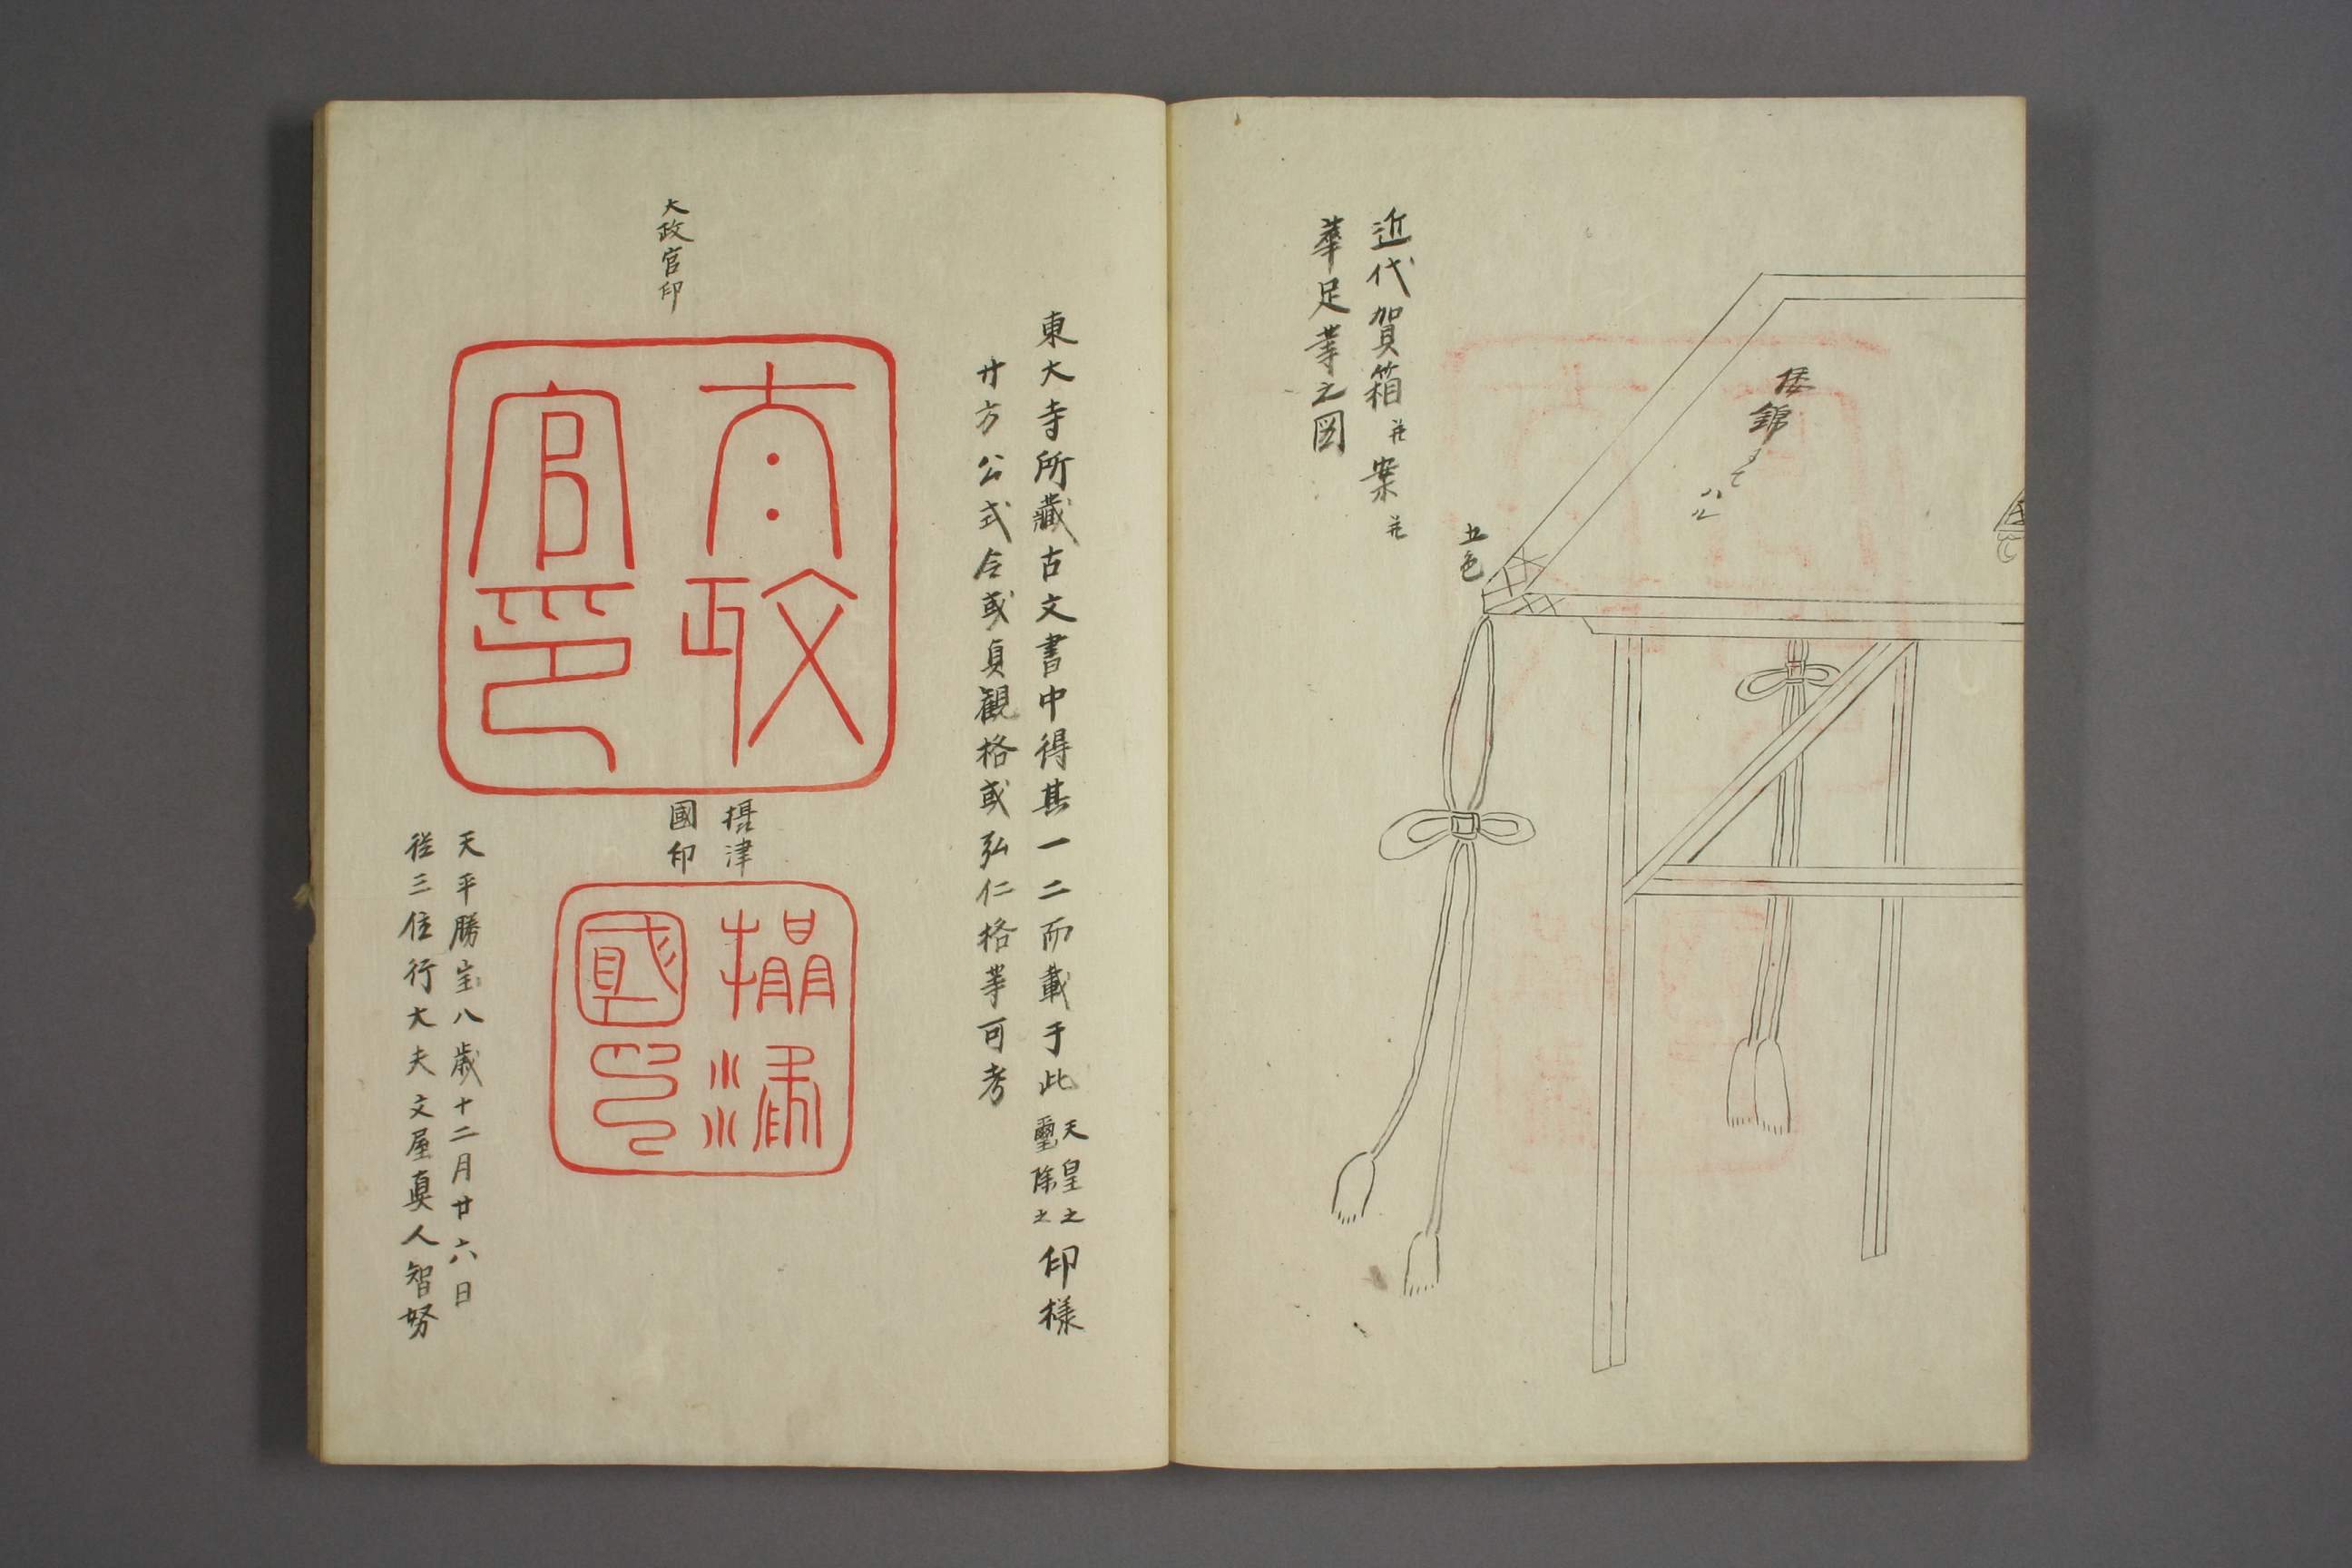 倭錦
五色
近代賀箱并案并
華足等之図
東大寺所蔵古文書中得其一二而載于此天皇之璽除之印様
廿方公式令或貞観格或弘仁格等可考
大政官印
太政官印
摂津
國印
攝津國印
天平勝宝八歳十二月廿六日
従三位行大夫文屋真人智努